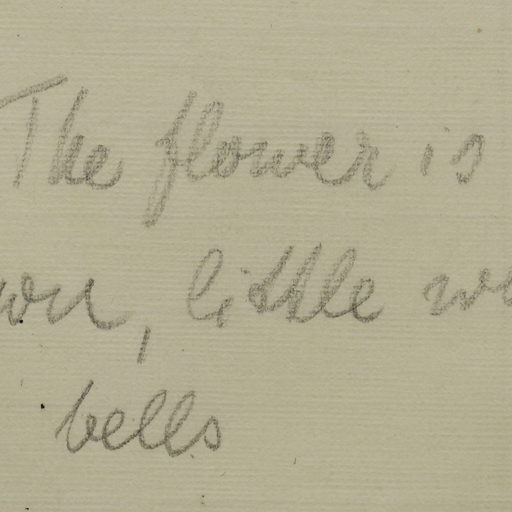 The flower is
, little
bells